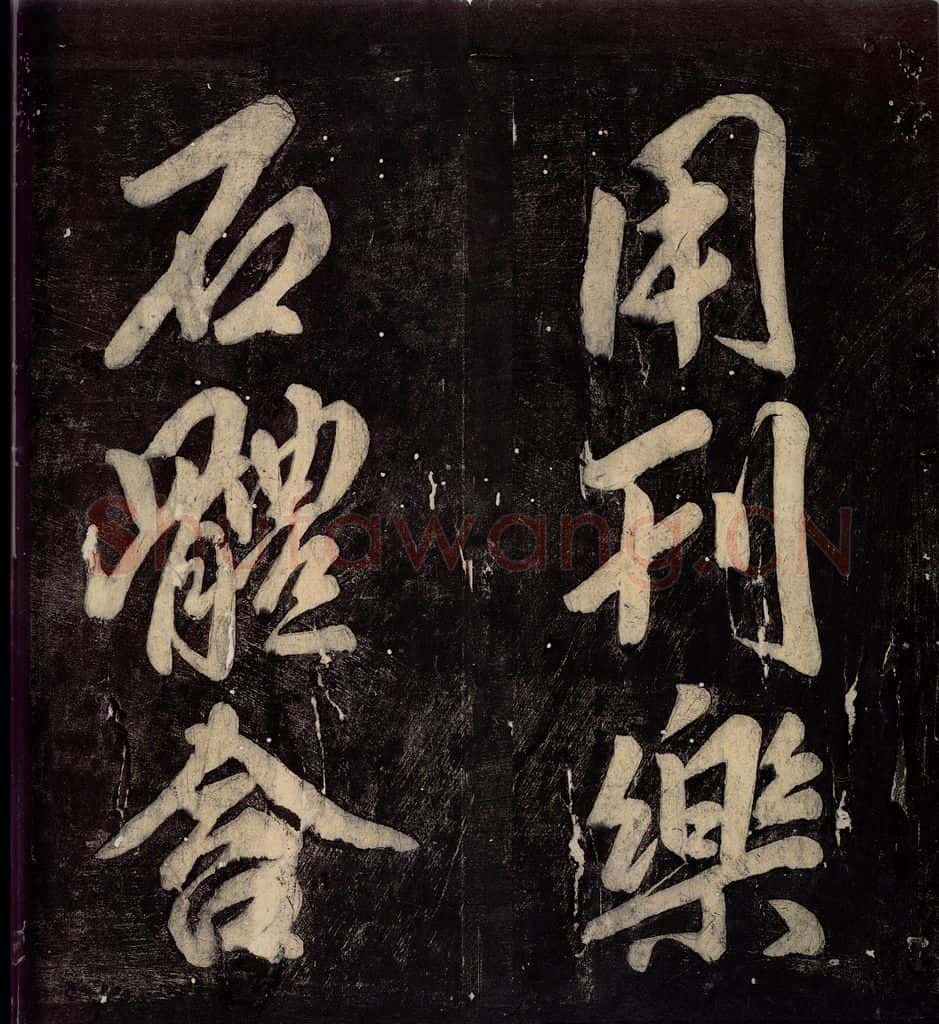 用刊樂
石體含
Shufawang.CN